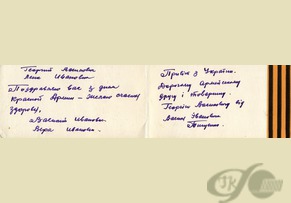 Георгий
Иванович
Поздравляю вас з днем
Красной Армии – желаю
здоровья,
Василий Иванович.
Вера Ивановна.
Привіт з України.
Дорогому Армійському
другу і товаришу.
Георгію від
Василя Івановича